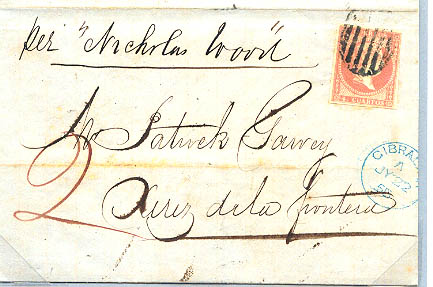 per "Nicholas Wood"
4 CUARTOS
Mr Patrick Garvey
GIBRAL
A
JY 22
2
Xerez de la frontera